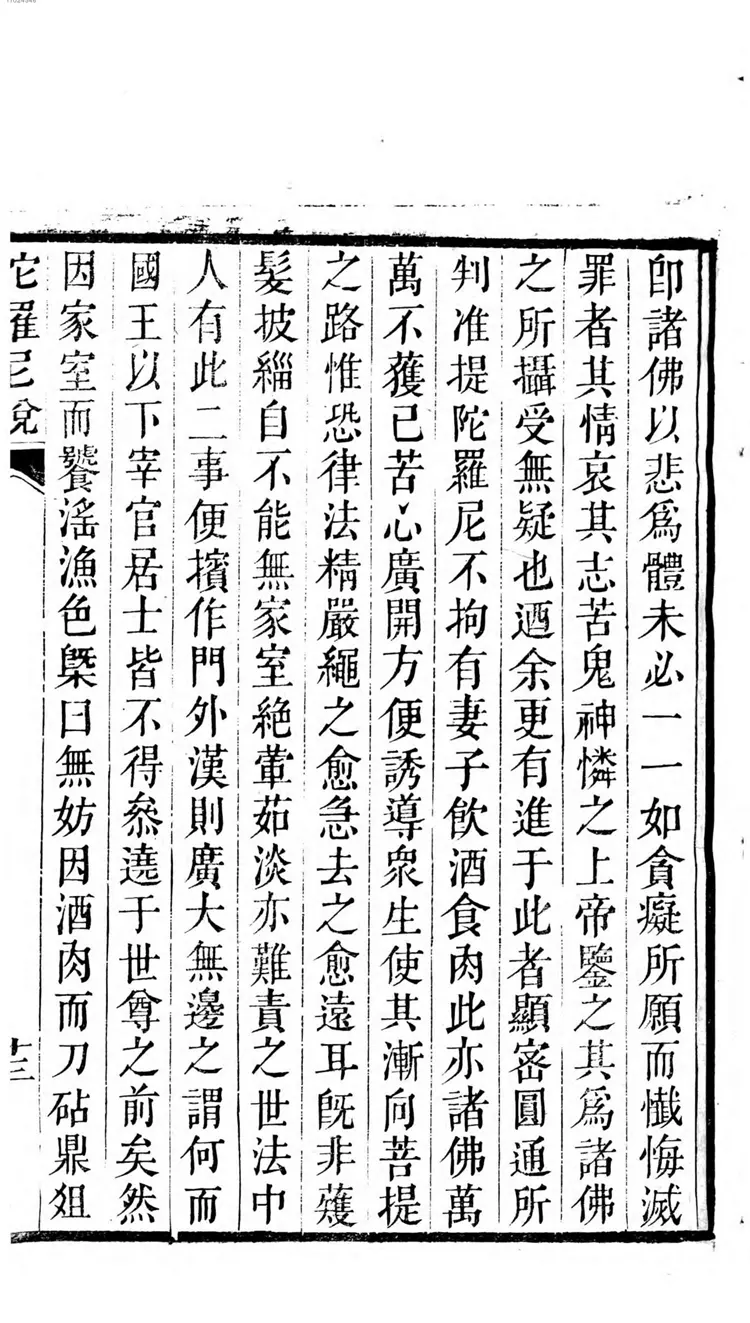 卽諸佛以悲爲體未必一一如貪癡所願而懺悔滅
罪者其情哀其志苦鬼神憐之上帝鑒之其爲諸佛
之所攝受無疑也迺余更有進于此者顯宻圓通所
判准提陀羅尼不拘有妻子飲酒食肉此亦諸佛萬
萬不獲已苦心廣開方便誘導衆生使其漸向菩提
之路惟恐律法精嚴繩之愈急去之愈遠耳旣非薙
髮披緇自不能無家室絶葷茹淡亦難責之世法中
人有此二事便擯作門外漢則廣大無邊之謂何而
國王以下宰官居士皆不得叅遶于世尊之前矣然
因家室而饕滛漁色槩曰無妨因酒肉而刀砧鼎俎
陀羅尼說
十三